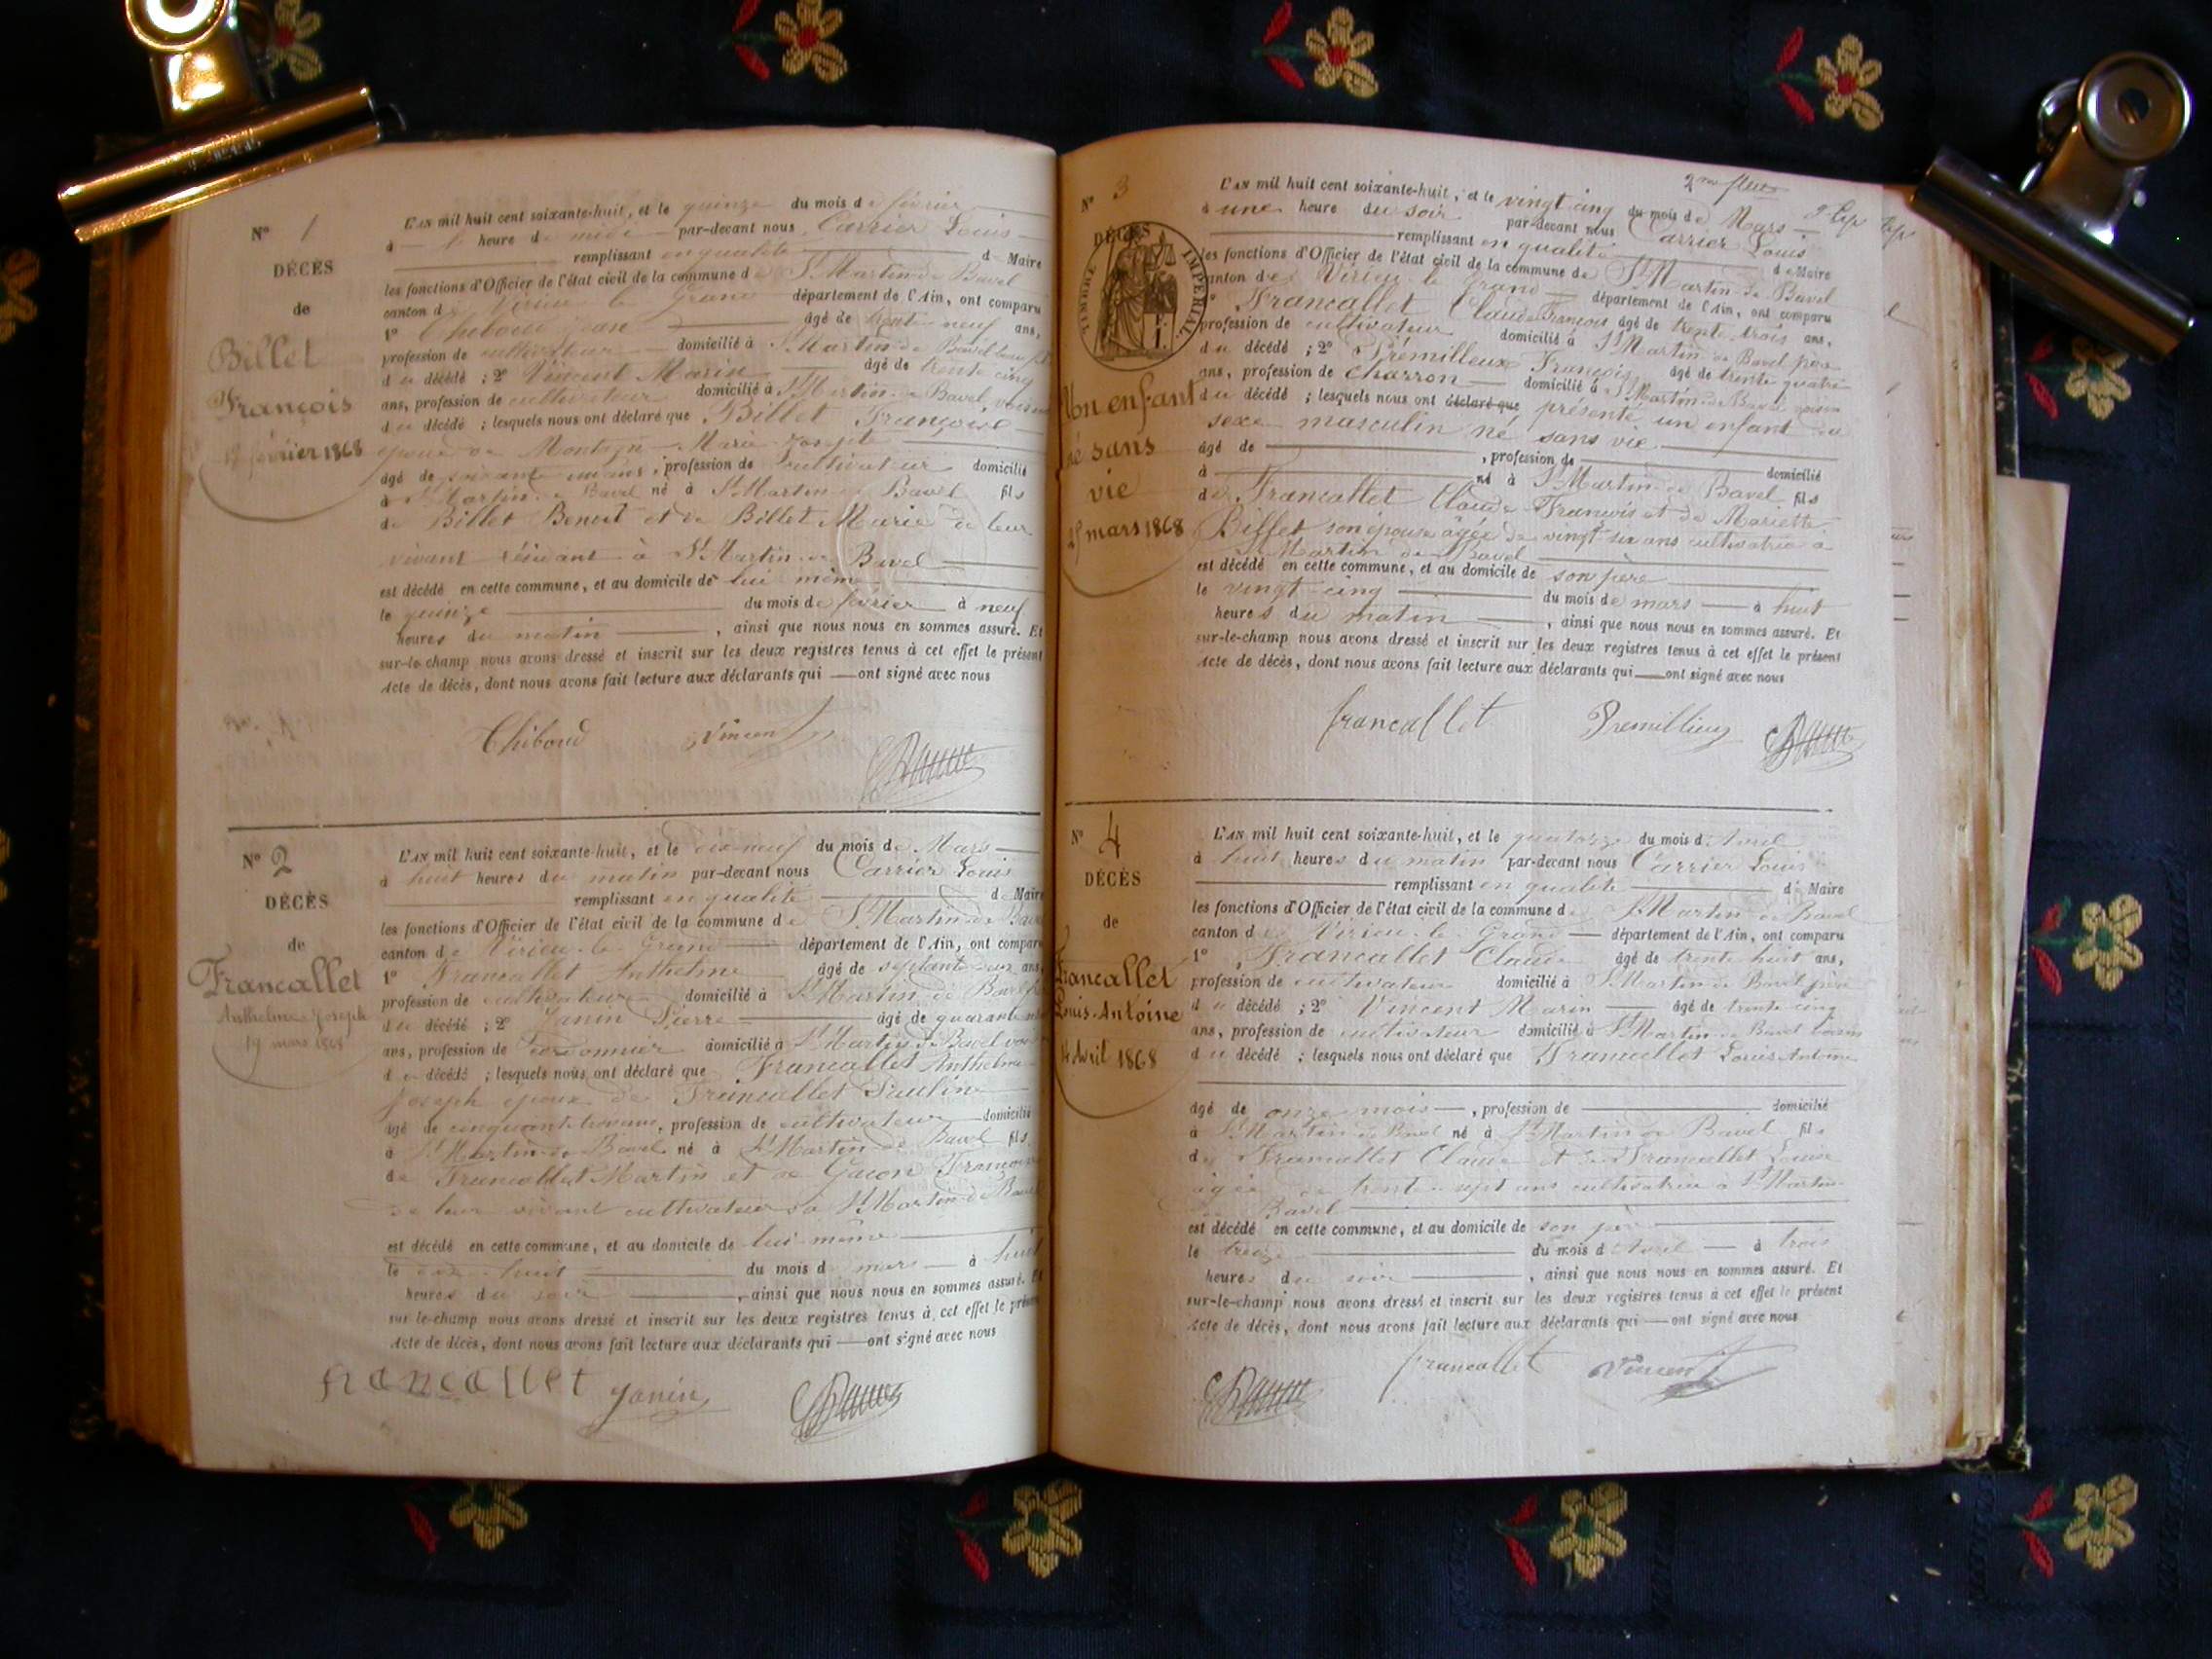 N° 1
DÉCÈS
de
Billet
François
février 1868
L'AN mil huit cent soixante-huit, et le quinze du mois de février
à heure de midi par-devant nous Carrier Louis
remplissant en qualité de Maire
les fonctions d'Officier de l'état civil de la commune de St Martin de Bavel
canton de Virieu le Grand département de l'Ain, ont comparu
1° Chiboud Jean âgé de trente neuf ans,
profession de cultivateur domicilié à St Martin de Bavel
du décédé ; 2° Vincent Marin âgé de trente cinq
ans, profession de cultivateur domicilié à St Martin de Bavel, voisin
du décédé ; lesquels nous ont déclaré que Billet François
époux de Marie
âgé de soixante ans, profession de cultivateur domicilié
à St Martin de Bavel né à St Martin de Bavel fils
de Billet Benoit et de Billet Marie de leur
vivant à St Martin de Bavel
est décédé en cette commune, et au domicile de lui même
le quinze du mois de février à neuf
heures du matin, ainsi que nous nous en sommes assuré. Et
sur-le-champ nous avons dressé et inscrit sur les deux registres tenus à cet effet le présent
Acte de décès, dont nous avons fait lecture aux déclarants qui ont signé avec nous
Chiboud Vincent
N° 2
DÉCÈS
de
Francallet
Anthelme Joseph
19 mars 1868
L'AN mil huit cent soixante-huit, et le dix neuf du mois de Mars
à huit heures du matin par-devant nous Carrier Louis
remplissant en qualité de Maire
les fonctions d'Officier de l'état civil de la commune de St Martin de Bavel
canton de Virieu le Grand département de l'Ain, ont comparu
1° Francallet Anthelme âgé de septante ans,
profession de cultivateur domicilié à St Martin de Bavel
du décédé ; 2° Janin Pierre âgé de quarante
ans, profession de cordonnier domicilié à St Martin de Bavel
du décédé ; lesquels nous ont déclaré que Francallet Anthelme
Joseph époux de Francallet Pauline
âgé de cinquante trois ans, profession de cultivateur domicilié
à St Martin de Bavel né à St Martin de Bavel fils
de Francallet Martin et de Gacon Françoise
de leur vivant cultivateurs à St Martin de Bavel
est décédé en cette commune, et au domicile de lui même
le dix huit du mois de mars à huit
heures du soir, ainsi que nous nous en sommes assuré. Et
sur-le-champ nous avons dressé et inscrit sur les deux registres tenus à cet effet le présent
Acte de décès, dont nous avons fait lecture aux déclarants qui ont signé avec nous
francallet Janin
2me
N° 3
DÉCÈS
TIMBRE IMPÉRIAL
Un enfant
né sans
vie
25 mars 1868
L'AN mil huit cent soixante-huit, et le vingt cinq du mois de Mars
à une heure du soir par-devant nous Carrier Louis
remplissant en qualité de Maire
les fonctions d'Officier de l'état civil de la commune de St Martin de Bavel
canton de Virieu le Grand département de l'Ain, ont comparu
1° Francallet Claude François âgé de trente trois ans,
profession de cultivateur domicilié à St Martin de Bavel père
du décédé ; 2° Prémilleux François âgé de trente quatre
ans, profession de charron domicilié à St Martin de Bavel voisin
du décédé ; lesquels nous ont déclaré que présenté un enfant du
sexe masculin né sans vie
âgé de , profession de
à né à St Martin de Bavel domicilié fils
de Francallet Claude François et de Mariette
Billet son épouse âgée de vingt six ans cultivatrice à
St Martin de Bavel
est décédé en cette commune, et au domicile de son père
le vingt cinq du mois de mars à huit
heures du matin, ainsi que nous nous en sommes assuré. Et
sur-le-champ nous avons dressé et inscrit sur les deux registres tenus à cet effet le présent
Acte de décès, dont nous avons fait lecture aux déclarants qui ont signé avec nous
francallet Premilleux
N° 4
DÉCÈS
de
Francallet
Louis-Antoine
14 Avril 1868
L'AN mil huit cent soixante-huit, et le quatorze du mois d'Avril
à huit heures du matin par-devant nous Carrier Louis
remplissant en qualité de Maire
les fonctions d'Officier de l'état civil de la commune de St Martin de Bavel
canton de Virieu le Grand département de l'Ain, ont comparu
1° Francallet Claude âgé de trente huit ans,
profession de cultivateur domicilié à St Martin de Bavel père
du décédé ; 2° Vincent Marin âgé de trente cinq
ans, profession de cultivateur domicilié à St Martin de Bavel voisin
du décédé ; lesquels nous ont déclaré que Francallet Louis Antoine
âgé de onze mois, profession de domicilié
à St Martin de Bavel né à St Martin de Bavel fils
de Francallet Claude et de Francallet Louise
âgée de trente sept ans cultivatrice à St Martin
de Bavel
est décédé en cette commune, et au domicile de son père
le treize du mois d'Avril à trois
heures du soir, ainsi que nous nous en sommes assuré. Et
sur-le-champ nous avons dressé et inscrit sur les deux registres tenus à cet effet le présent
Acte de décès, dont nous avons fait lecture aux déclarants qui ont signé avec nous
francallet Vincent